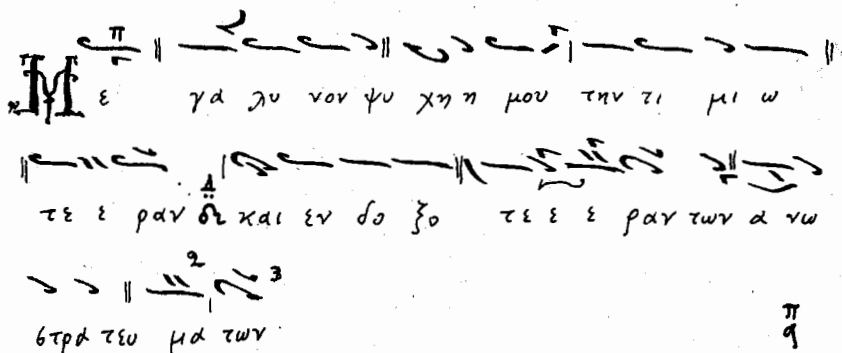 Με γα λυ νον ψυ χη η μου την τι μι ω
τε ε ραν και εν δο ξο τε ε ε ραν των α νω
στρα τευ μα των